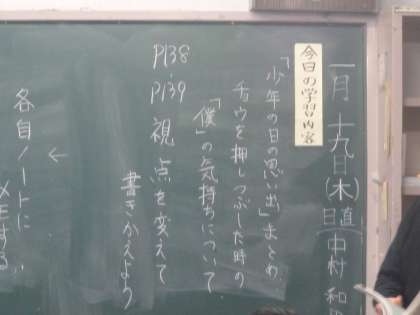 一月十九日(木)
日直 中村 和
今日の学習内容
「少年の日の思い出」まとめ
チョウを押しつぶした時の
「僕」の気持ちについて。
P138
P139 視点を変えて
書きかえよう
↓
各自ノートに
メモする。